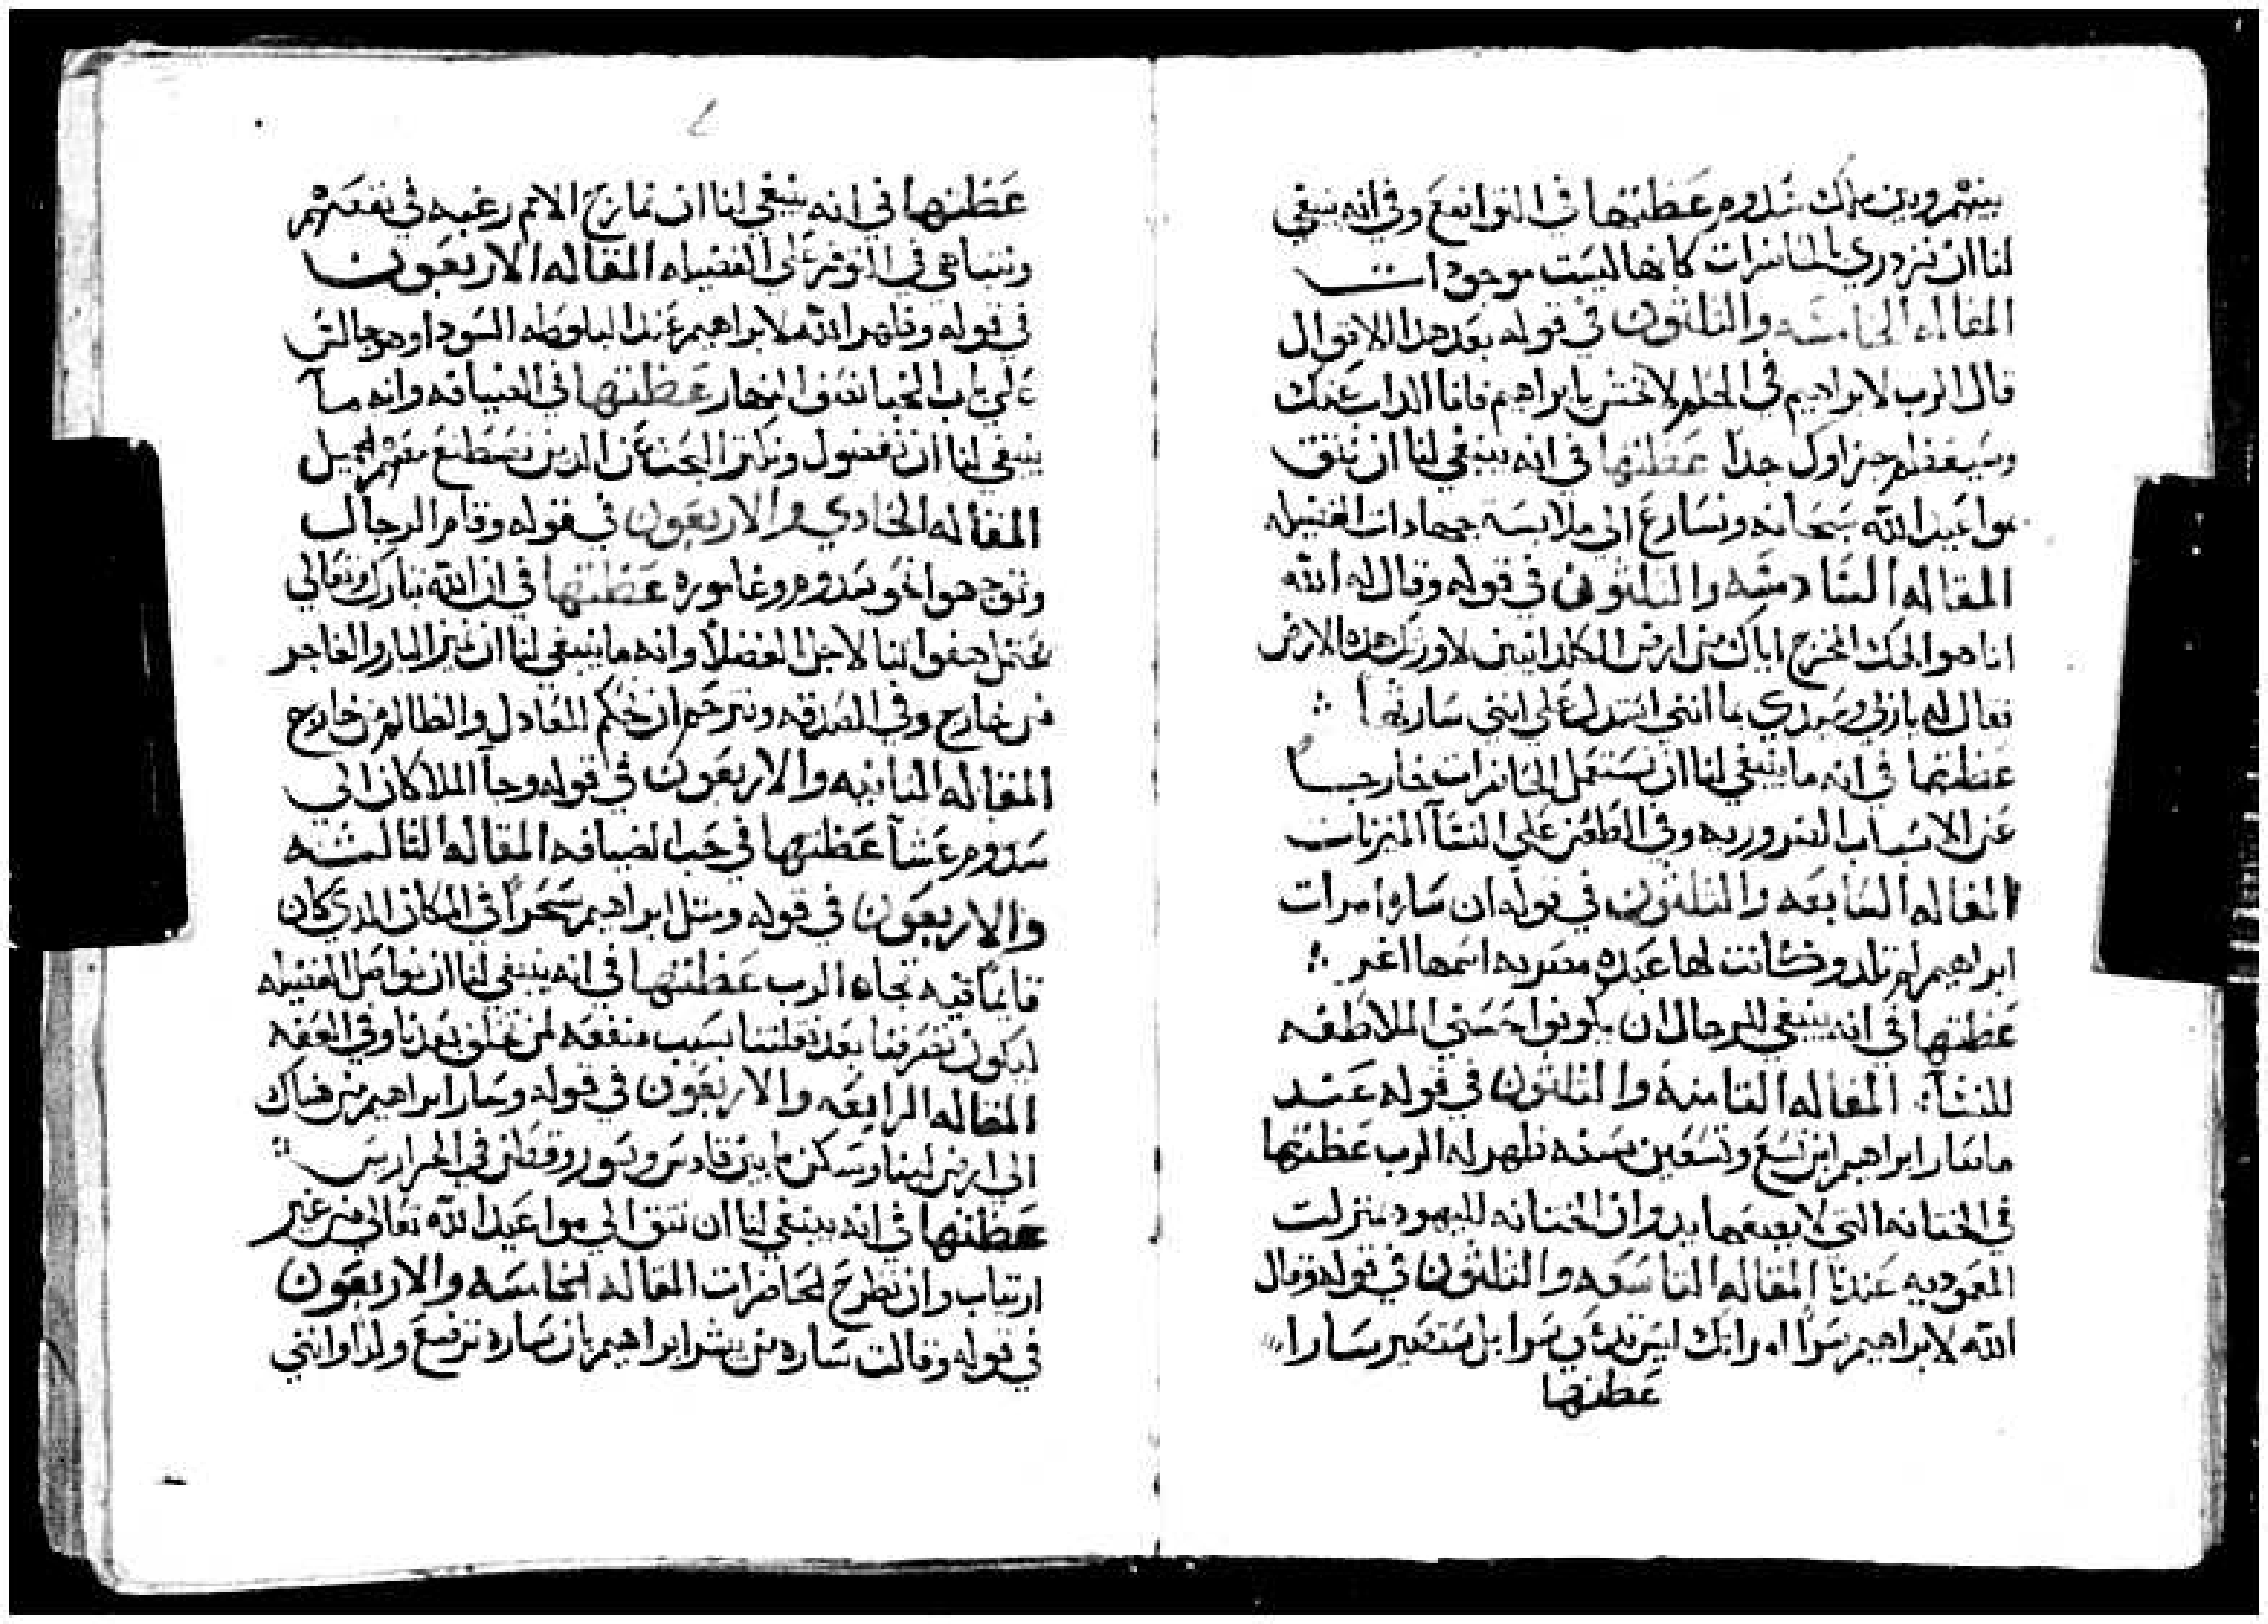 بينهم وبين ملك سدوم عظتها في التواضع وفي انه ينبغي
لنا ان نزدري بالحاضرات كانها ليست موجودات
المقاله الخامسه والثلثون في قوله بعد هذا الاقوال
قال الرب لابراهيم في الحلم لا تخش يا براهيم فانا الداب عنك
جزاوك جدا عظتها في انه ينبغي لنا ان نثق
مواعيد الله سبحانه ونسارع الي ملابسة جهادات الفضيله
المقاله السادسه والثلثون في قوله وقال له الله
انا هو الهك المخرج اياك من ارض الكلدانيين لاورثك هده الارض
فقال له يا ربي وسيدي بما انني استدل علي انني سارثها
عظتها في انه ما ينبغي لنا ان نستعمل الحاضرات خارجا
عن الاسباب الضروريه وفي الطعن علي النسآ المتزينات
المقاله السابعه والثلثون في قوله ان ساره امرات
ابراهيم لم تلد وكانت لها عبده مصريه اسمها اغر
عظتها في انه ينبغي للرجال ان يكونوا حسني الملاطفه
للنسآ المقاله التامنه والثلثون في قوله عند
ما صار ابراهيم ابن تسع وتسعين سنه ظهر له الرب عظتها
في الختانه التي لا بصنعها يد وان الختانه لليهود بمنزلت
المعموديه عندنا المقاله التاسعه والثلثون في قوله وقال
الله لابراهيم سرا امراتك ليس تدعي سرا بل ستصير سارا
عظتها
عظتها في انه ينبغي لنا ان نمازج الامم رغبه في نفعهم
ونتناهي في التوفر علي الفضيله المقاله الاربعون
في قوله وظهر الله لابراهيم عند البلوطه السودا وهو جالس
علي باب الخبا نصف النهار عظتها في الضيافه وانه ما
ينبغي لنا ان نفضول ونكثر البحث عن الدين نصطنع معهم الجميل
المقاله الحادي والاربعون في قوله وقام الرجال
وتوجهوا نحو سدوم وعاموره عظتها في ان الله تبارك وتعالي
يحتمل هفواتنا لاجل الفضلآ وانه ما ينبغي لنا ان نميز البار والفاجر
من خارج وفي الصدقه ونترحم ان نحكم للعادل والظالم من خارج
المقاله التانيه والاربعون في قوله وجآ الملاكان الي
سدوم عشآ عظتها في حب الضيافه المقاله التالثه
والاربعون في قوله ومثل ابراهيم سحرا في المكان الدي كان
قايما فيه تجاه الرب عظتها في انه ينبغي لنا ان نواصل الفضيله
ليكون تصرفنا بعد نقلتنا بسبب منفعه لمن تخلف بعدنا وفي العفه
المقاله الرابعه والاربعون في قوله وسار ابراهيم من هناك
الي ارض ليبنا وسكن ما بين قادس وسور وقطن في الجرارس
عظتها في انه ينبغي لنا ان نتق الي مواعيد الله تعالي من غير
ارتياب وان نطرح الحاضرات المقاله الخامسه والاربعون
في قوله وقالت ساره من يبشر ابراهيم بان ساره ترضع ولدا وانني